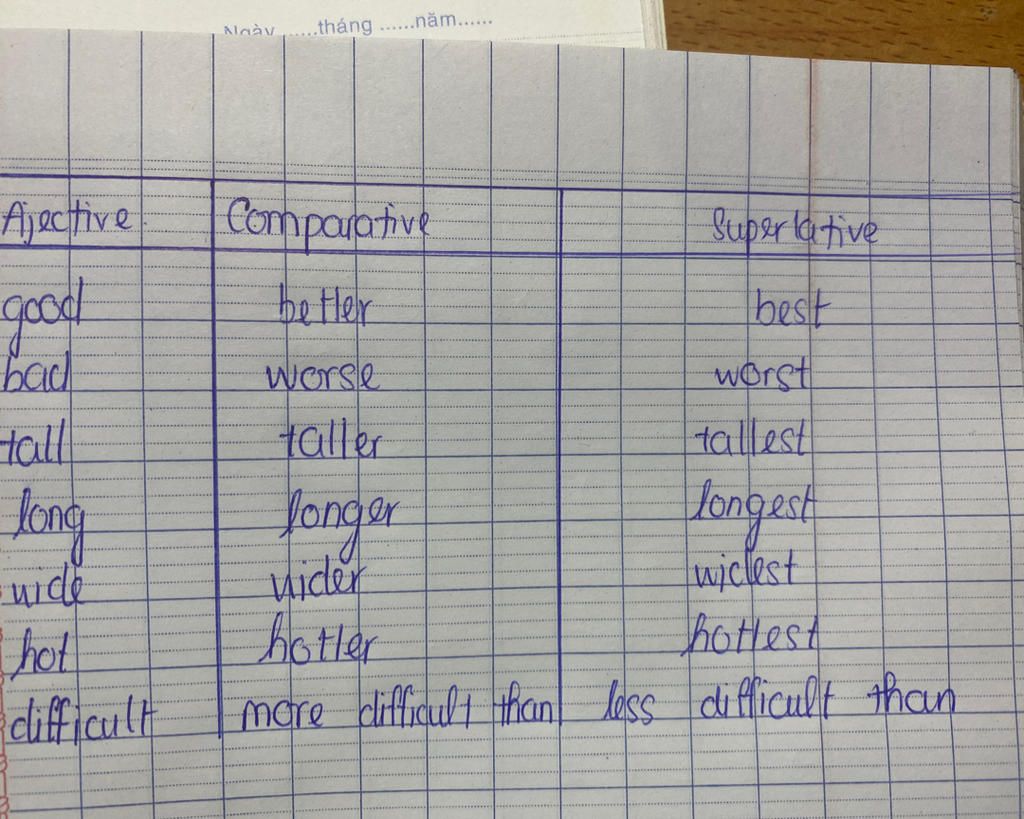 Ngày ......tháng ......năm......
Ajective Comparative Superlative
good better best
bad worse worst
tall taller tallest
long longer longest
wide wider widest
hot hotter hottest
difficult more difficult than less difficult than